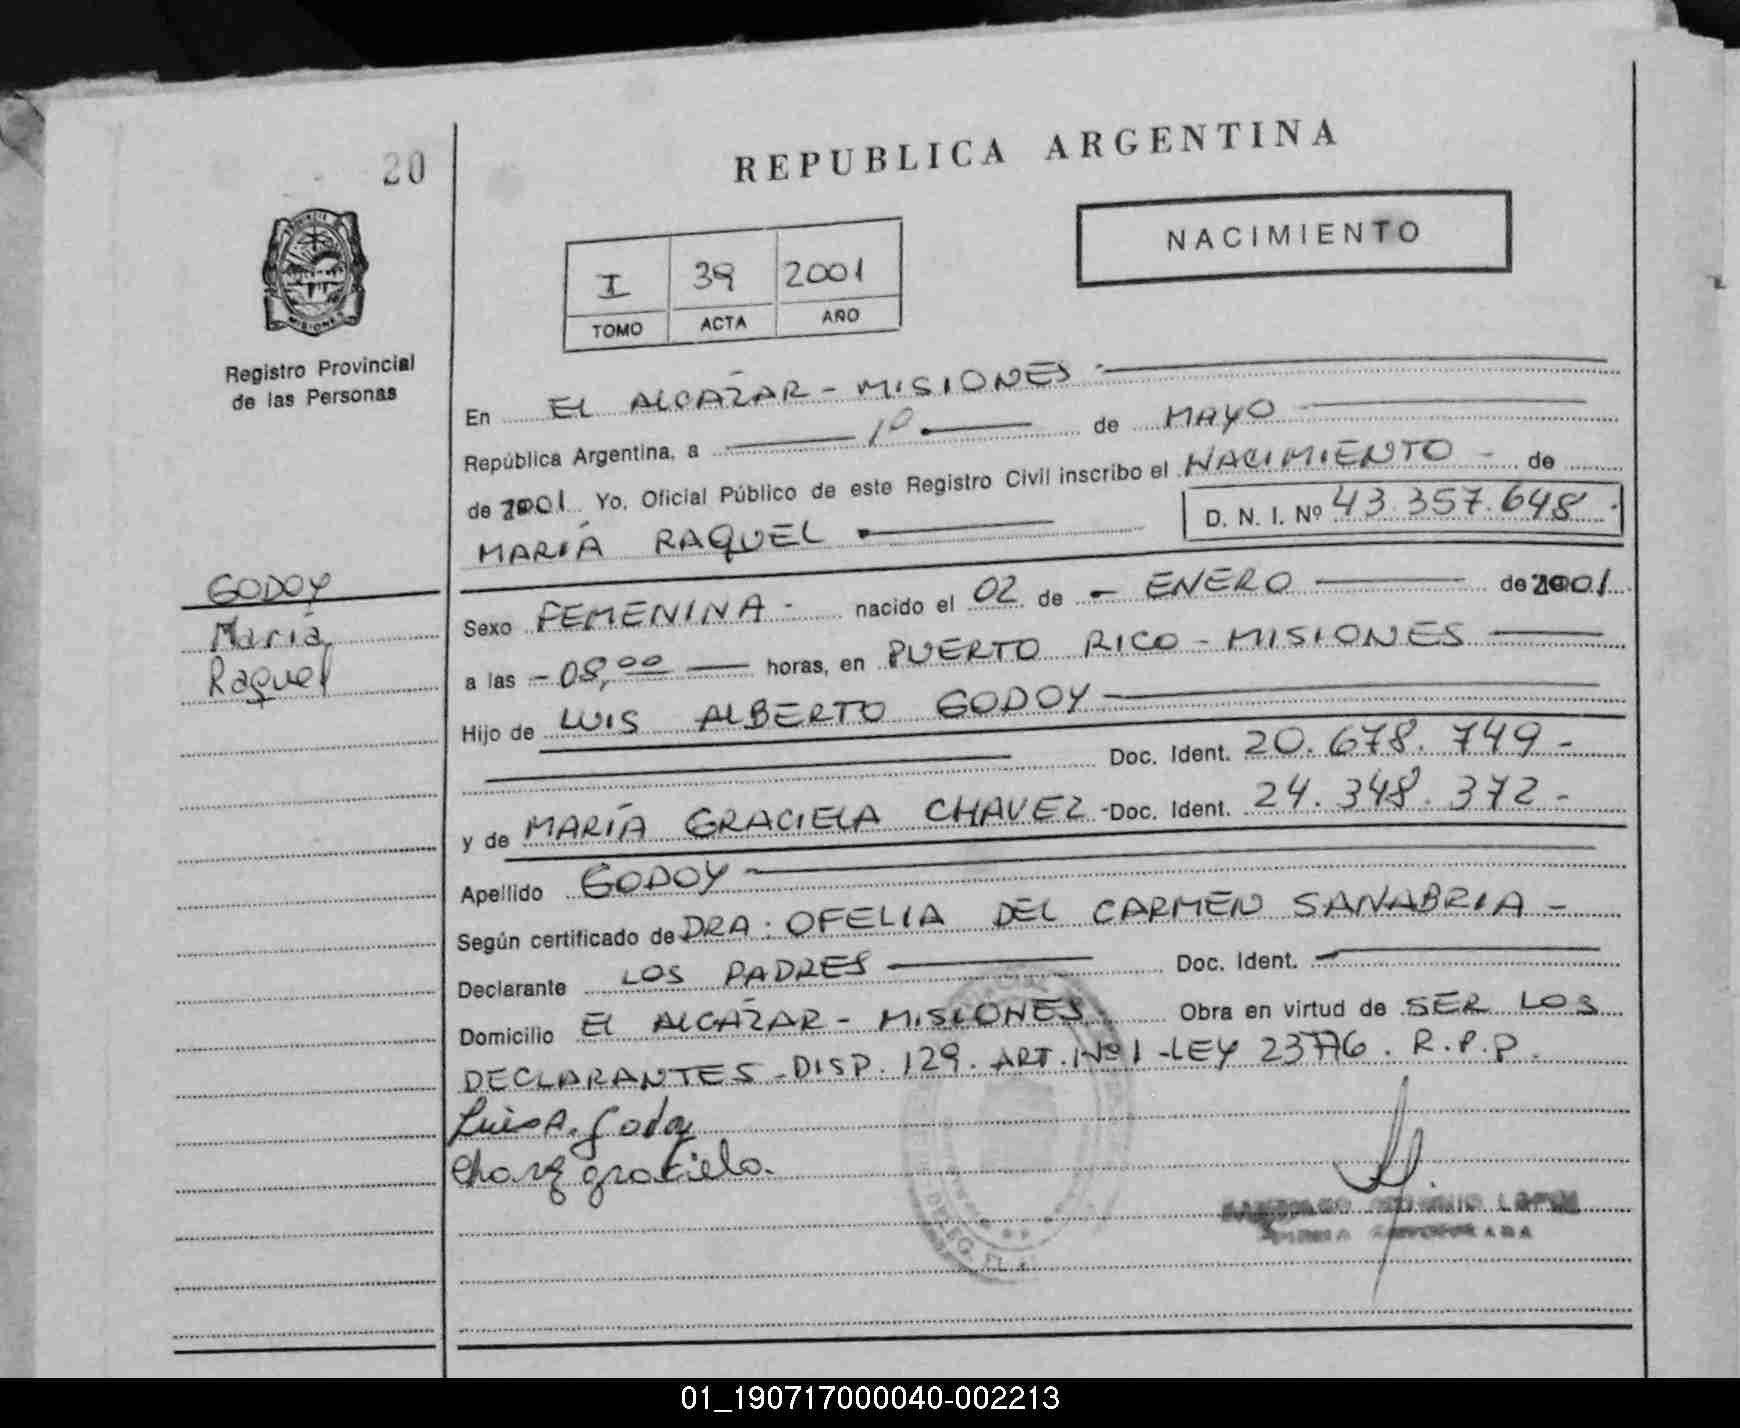 20
REPUBLICA ARGENTINA
NACIMIENTO
I 39 2001
TOMO ACTA AÑO
Registro Provincial
de las Personas
MISIONES
En EL ALCAZAR - MISIONES -
República Argentina, a 1º de MAYO
de 2001 Yo, Oficial Público de este Registro Civil inscribo el NACIMIENTO - de
MARIA RAQUEL D. N. I. Nº 43.357.648 -
GODOY
Maria
Raquel
Sexo FEMENINA - nacido el 02 de - ENERO de 2001
a las - 08,00 horas, en PUERTO RICO - MISIONES
Hijo de LUIS ALBERTO GODOY
Doc. Ident. 20.678.749 -
y de MARÍA GRACIELA CHAVEZ - Doc. Ident. 24.348.372 -
Apellido GODOY
Según certificado de DRA: OFELIA DEL CARMEN SANABRIA -
Declarante LOS PADRES Doc. Ident.
Domicilio El ALCAZAR - MISIONES Obra en virtud de SER LOS
DECLARANTES - DISP. 129. ART. Nº 1 - LEY 23776. R.P.P.
Luis A. Godoy
Chavez graciela.
01_190717000040-002213